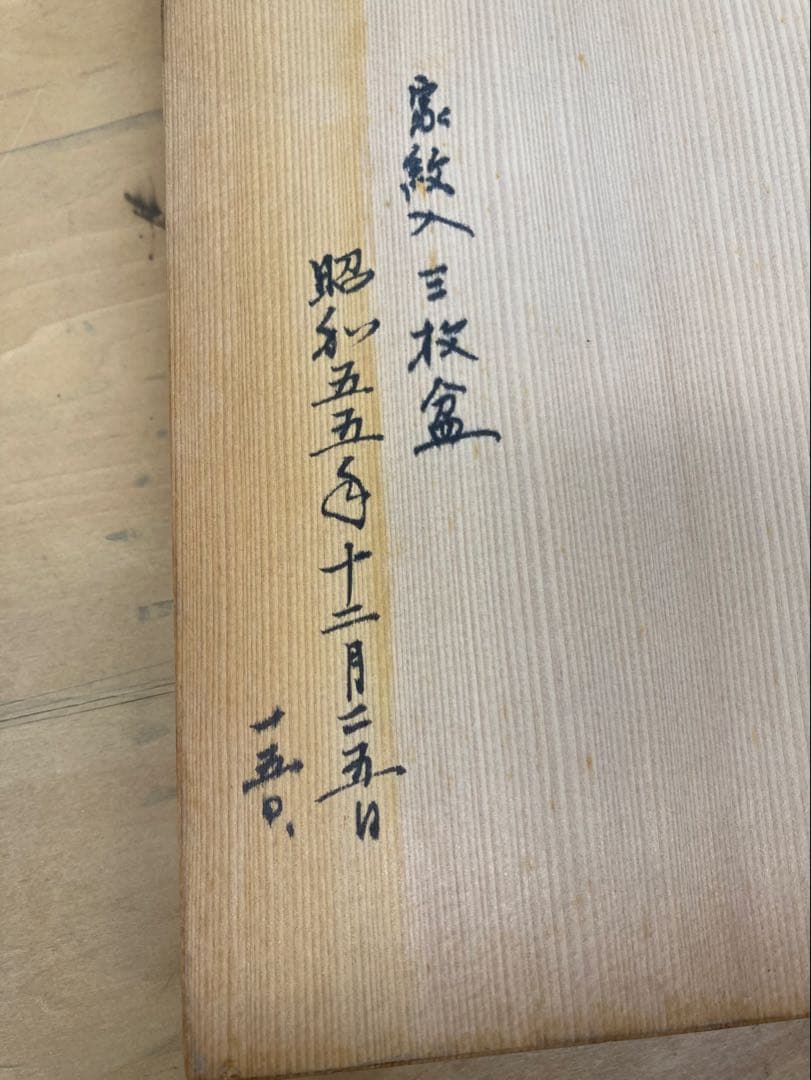 家紋入三枚盆
昭和五五年十二月二五日